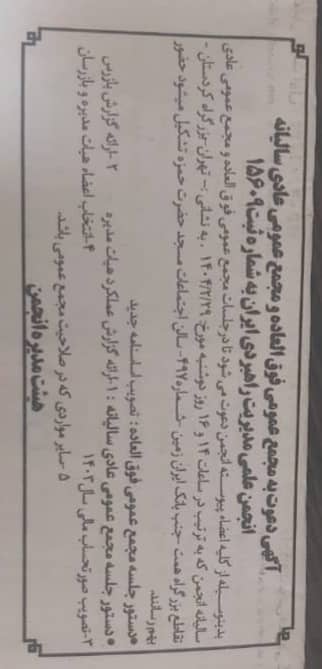 آگهی دعوت به مجمع عمومی فوق العاده و مجمع عمومی عادی سالیانه
انجمن علمی مدیریت راهبردی ایران به شماره ثبت ۱۵۶۰۹
بدینوسیله از کلیه اعضاء پیوسته انجمن دعوت می شود تا در جلسات مجمع عمومی فوق العاده و مجمع عمومی عادی
سالیانه انجمن که به ترتیب در ساعات ۱۴ و ۱۶ روز دوشنبه مورخ ۱۴۰۴/۲/۲۹ . به نشانی :- تهران-بزرگراه کردستان -
تقاطع بزرگراه همت -جنب بانک ایران زمین -شماره ۴۹۷- سالن اجتماعات مسجد حضرت حمزه تشکیل میشود حضور
بهم رسانند.
*دستور جلسه مجمع عمومی فوق العاده : تصویب اساسنامه جدید
*دستور جلسه مجمع عمومی عادی سالیانه : ۱-ارائه گزارش عملکرد هیات مدیره ۲-ارائه گزارش بازرس
۳-تصویب صورتحساب مالی سال ۱۴۰۳ ۴-انتخاب اعضاء هیات مدیره و بازرسان
۵ -سایر مواردی که در صلاحیت مجمع عمومی باشد.
هیئت مدیره انجمن